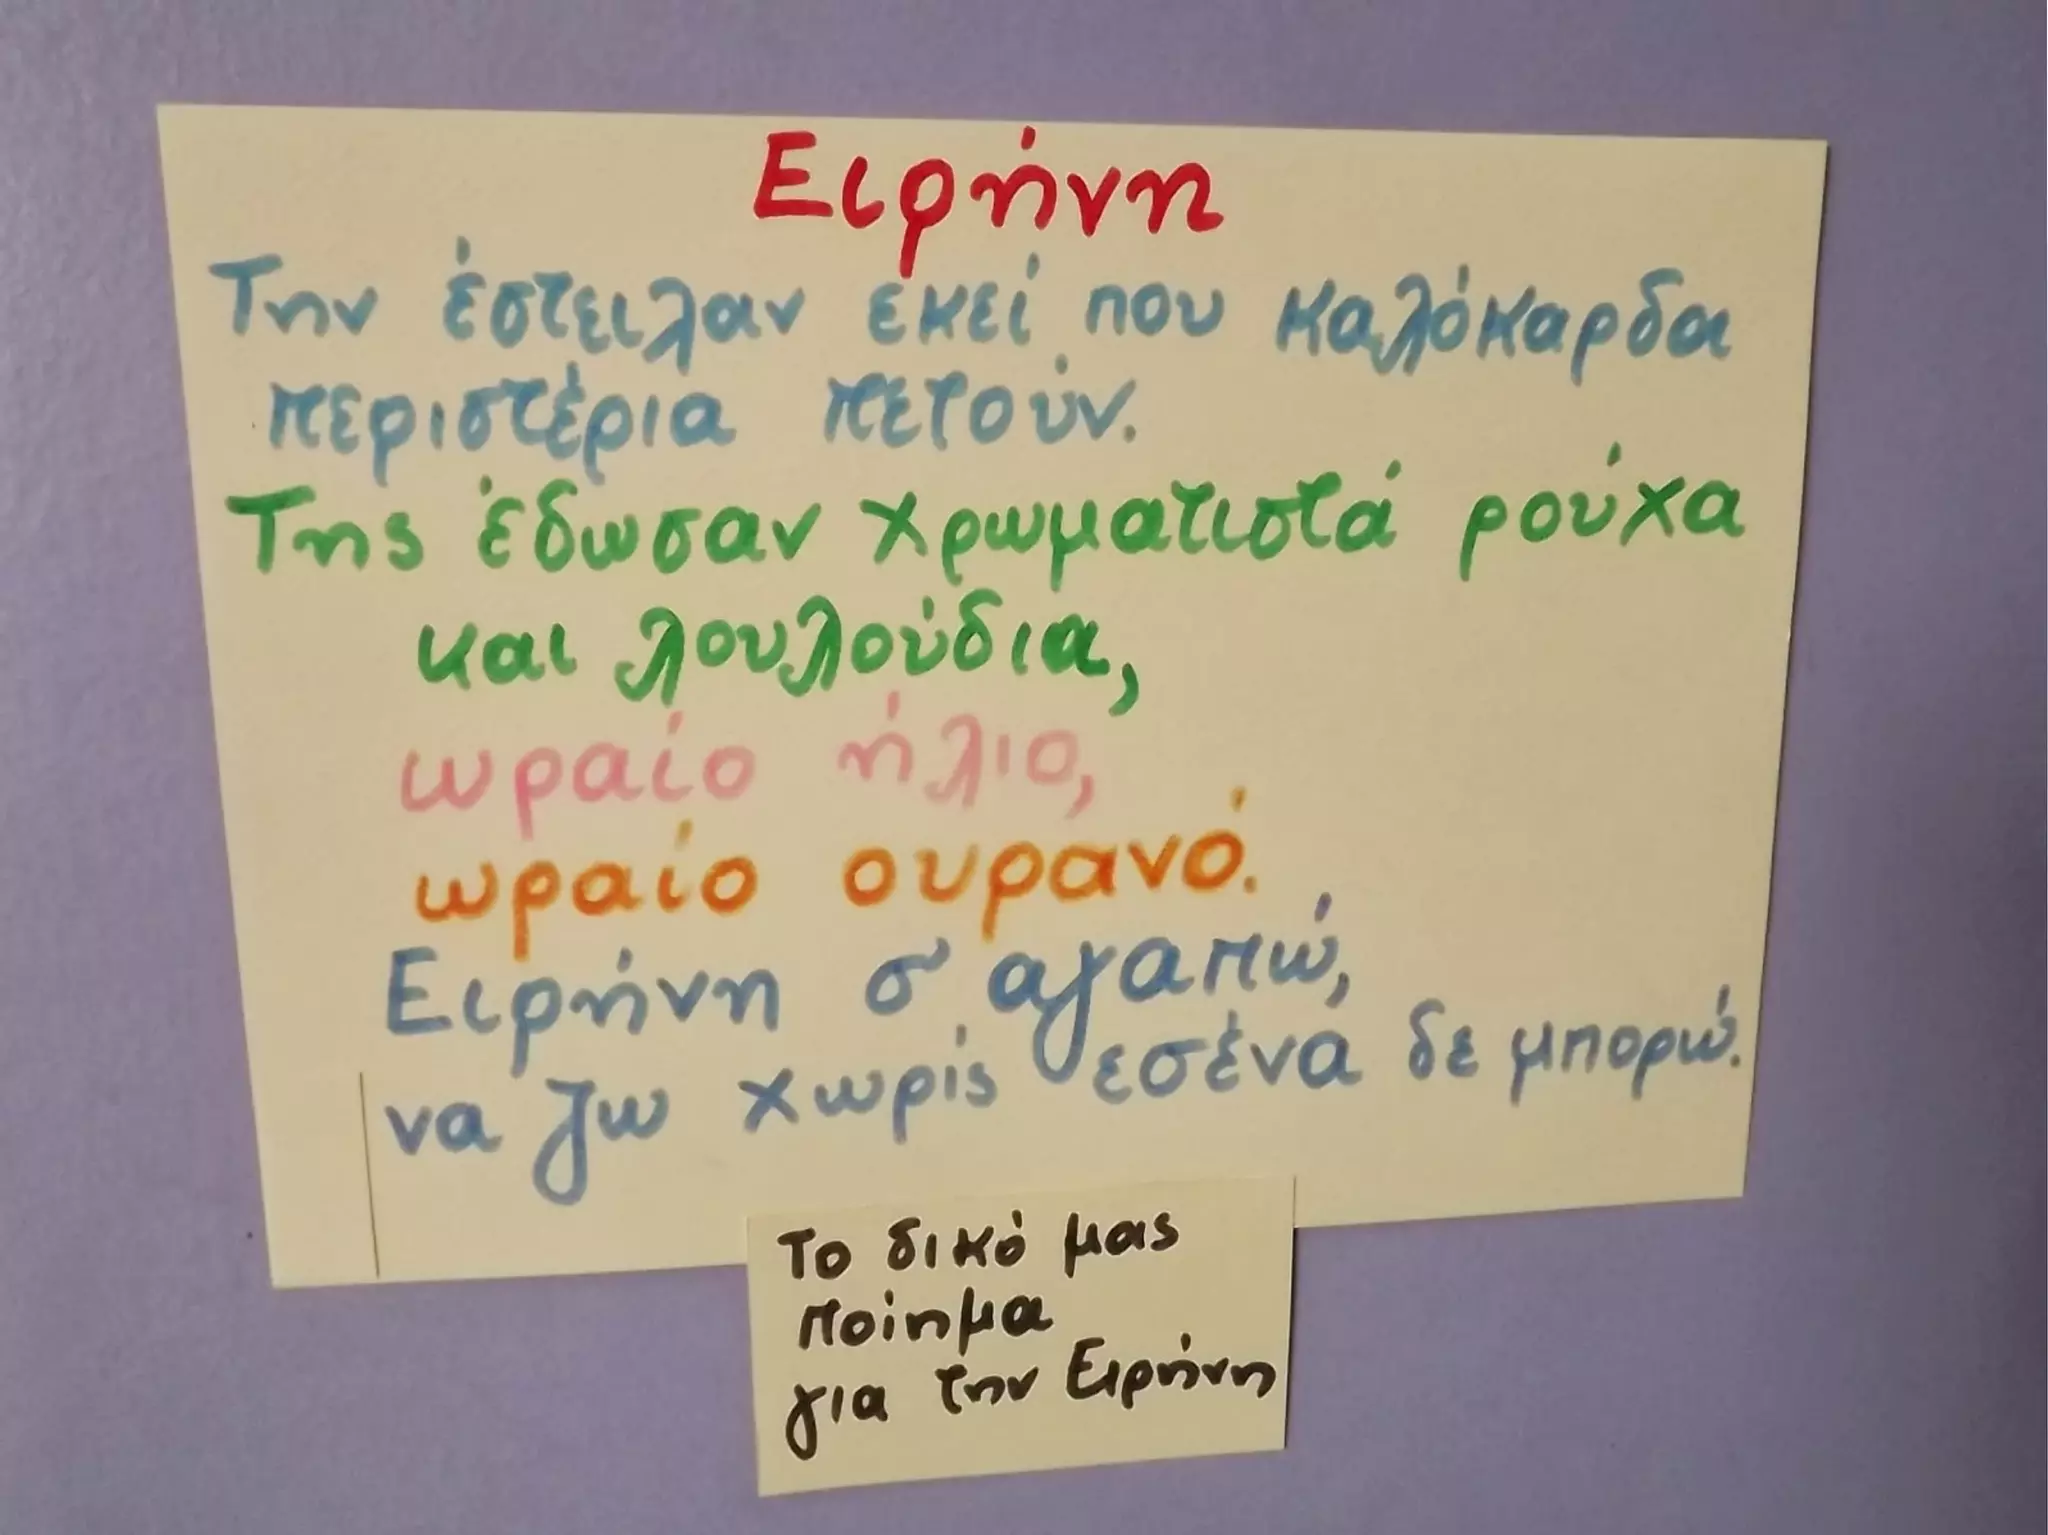 Ειρήνη
Την έστειλαν εκεί που καλόκαρδα
περιστέρια πετούν.
Της έδωσαν χρωματιστά ρούχα
και λουλούδια,
ωραίο ήλιο,
ωραίο ουρανό.
Ειρήνη σ' αγαπώ,
να ζω χωρίς εσένα δε μπορώ.
Το δικό μας
ποίημα
για την Ειρήνη